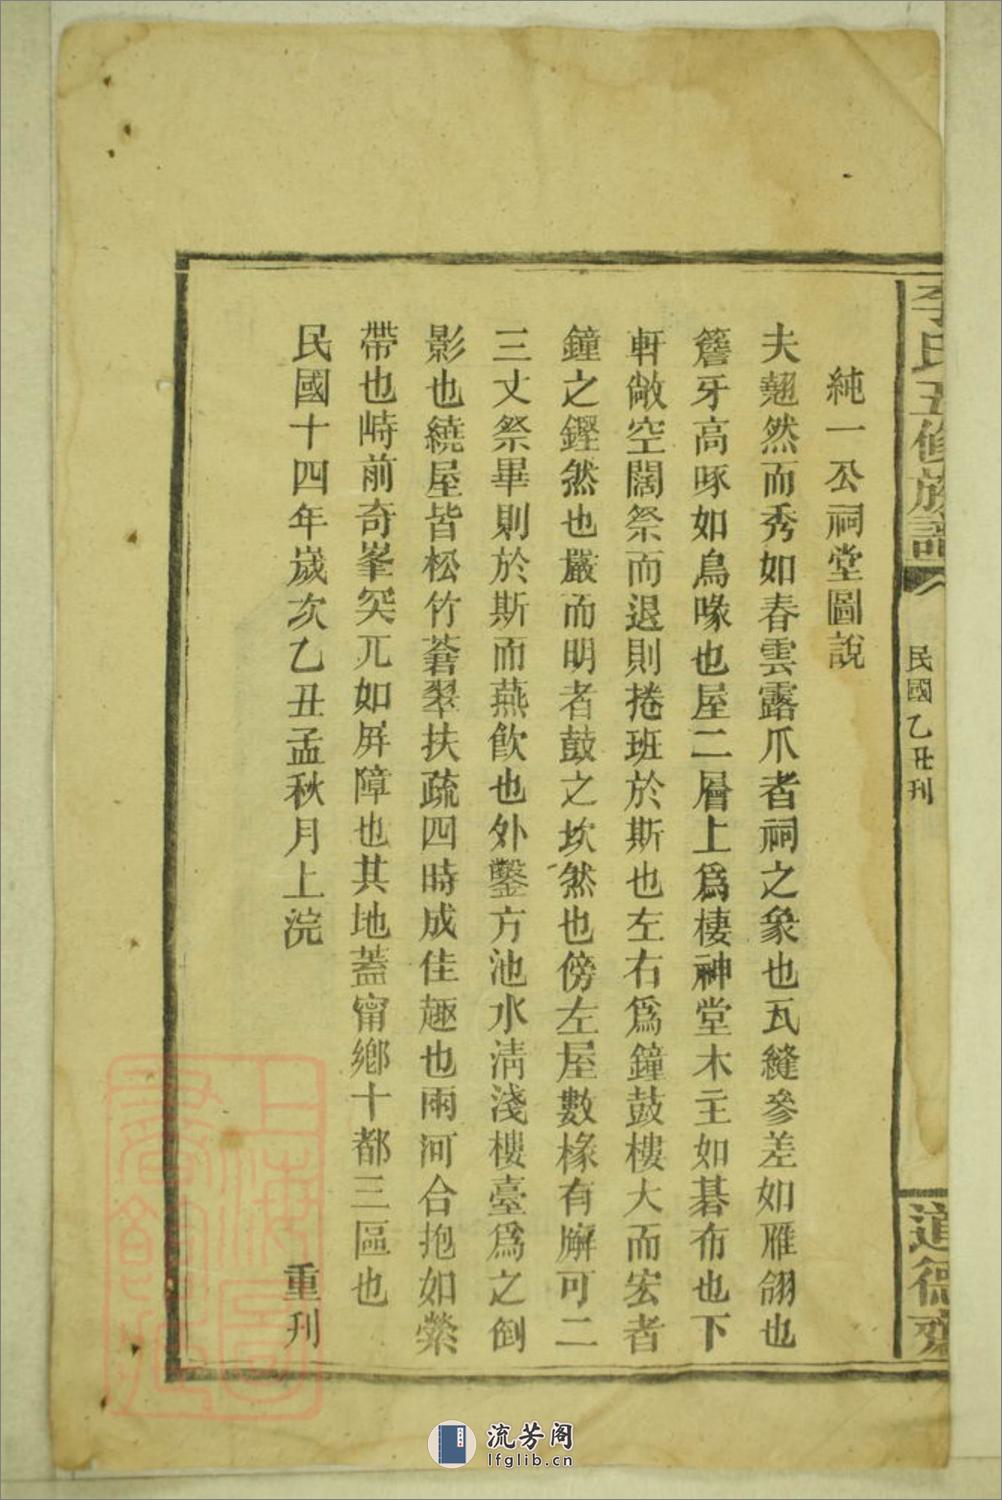 李氏五修族譜
民國乙丑刊
道德齋
純一公祠堂圖說
夫翹然而秀如春雲露爪者祠之象也瓦縫參差如雁翎也
簷牙高啄如鳥喙也屋二層上爲棲神堂木主如碁布也下
軒敞空闊祭而退則捲班於斯也左右爲鐘鼓樓大而宏者
鐘之鏗然也嚴而明者鼓之坎然也傍左屋數椽有廨可二
三丈祭畢則於斯而燕飲也外鑿方池水淸淺樓臺爲之倒
影也繞屋皆松竹蒼翠扶疏四時成佳趣也兩河合抱如縈
帶也峙前奇峯突兀如屏障也其地蓋甯鄉十都三區也
民國十四年嵗次乙丑孟秋月上浣 重刊
上海圖書館藏
流芳阁
lfglib.cn